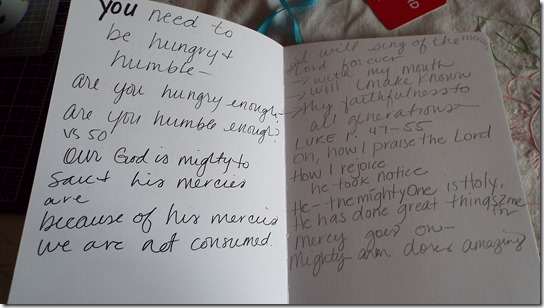 you need to
be hungry &
humble—
are you hungry enough?
are you humble enough?
vs 50
Our God is mighty to
save & his mercies
are
because of his mercies
we are not consumed.
I will sing of the mercies
Lord forever
→ with my mouth
→ will I make known
→ thy faithfulness to
all generations—
LUKE 1: 47-55
Oh, how I praise the Lord
How I rejoice
he took notice
He - the mighty One is Holy,
He has done great things 2 me
for
Mercy goes on—
Mighty arm does amazing